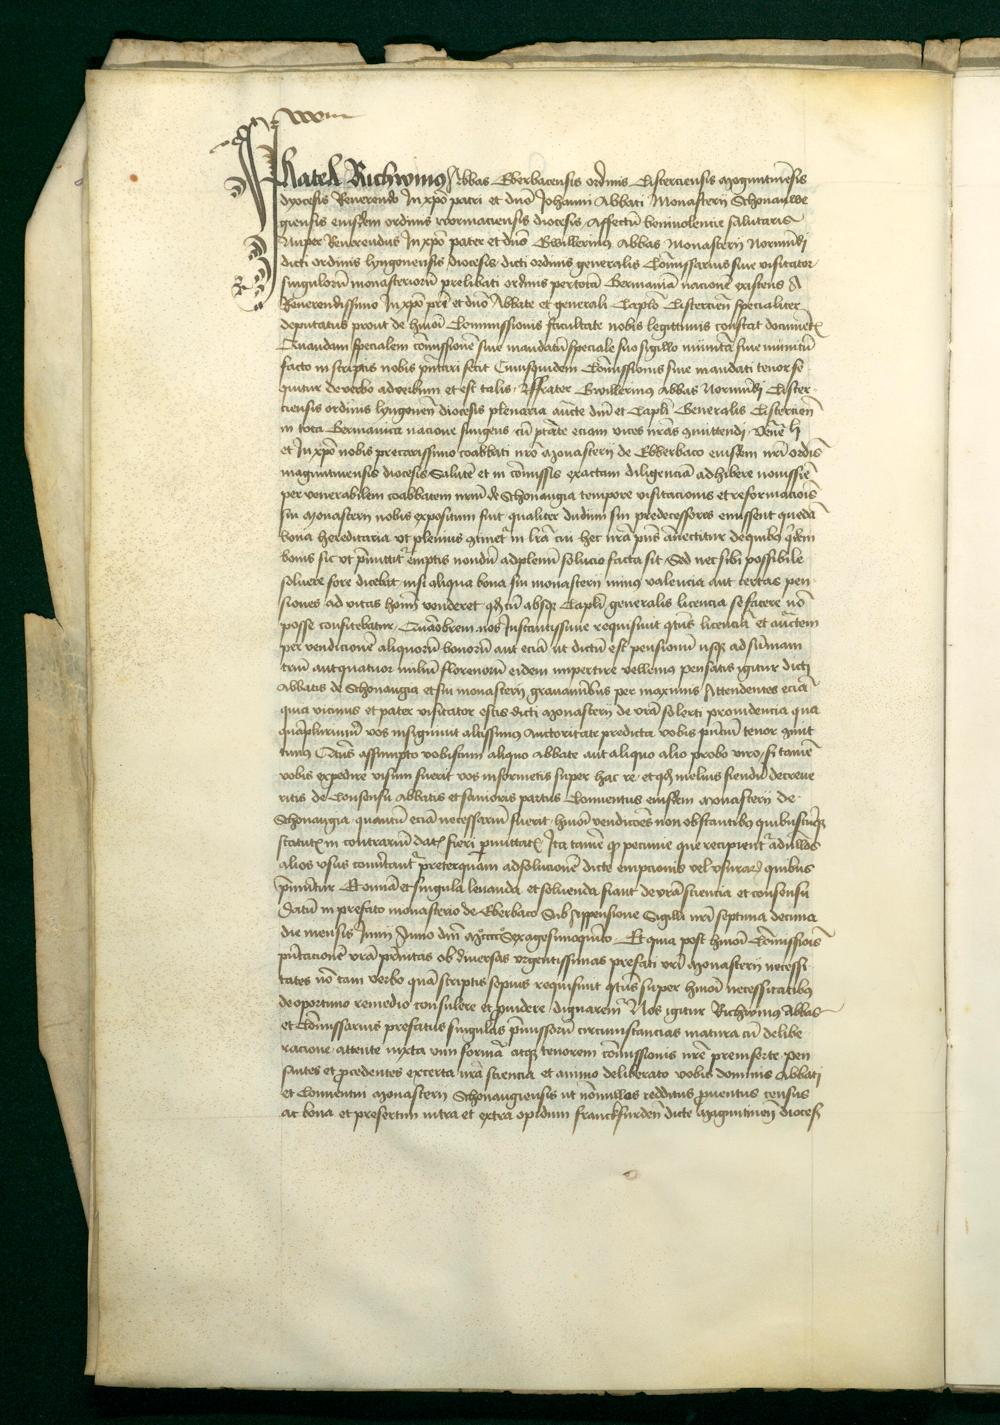 xxviii
Frater Richwinus Abbas Eberbacensis ordinis Cisterciensis magūtinēsis
dyocesis Reuerendo In xp̄o patri et dn̄o Johanni Abbati Monasterij Schonauwe
giensis eiusdem ordinis wormaciensis diocesis Affectū beniuolencie salutaris
Nuper Reuerendus In xp̄o pater et dn̄s Gwillermus Abbas Monasterij
dicti ordinis lyngonensis diocesis dicti ordinis generalis Cōmissarius siue visitator
singulorū monasteriorū prelibati ordinis per totā Germaniā nacionē existens A
Reuerendissimo In xp̄o prē et dn̄o Abbate et generali Caplō Cistercieñ specialiter
deputatus prout de hmōi Commissionis facultate nobis legittimis constat documēt
Quandam specialem cōmissionē siue mandatū speciale suo sigillo munitā siue munitū
facto in scriptis nobis pn̄tari fecit Cuiusquidem Cōmissionis siue mandati tenor se
quitur de verbo ad verbum et est talis ffrater Gwillermus Abbas Cister
ciensis ordinis lyngoneñ diocesis plenaria aucte dn̄i et Capli Generalis Cistercieñ
in tota Germanica nacione fungens cū ptāte eciam vices nr̄as 9mittendi
et In xp̄o nobis precarissimo coabbati nr̄o monasterij de Ebberbaco eiusdem nr̄i ordīs
maguntinensis diocesis Salutē et in cōmissis exactam diligenciā adhibere
per venerabilem coabbatem nr̄m de Schonaugia tempore visitacionis et reformacōis
sui monasterij nobis expositum fuit qualiter dudum sui predecessores emissent quedā
bona hereditaria vt plenius 9tinet in lr̄a cui hec nr̄a pn̄s annectitur de quibus q̄dem
bonis sic vt pmittit emptis nondū ad plenū solucio facta sit Sed nec sibi possibile
soluere fore dicebat nisi aliqua bona sui monasterij minus valencia aut certas pen
siones ad vitas hoīm venderet qd̄ cū absq̄ Capli generalis licencia se facere nō
posse confitebatur Quāobrem nos Instantissime requisiuit qtus licenciā et auctem
per vendicionē aliquorū bonorū aut eciā vt dictū est pensionū vsq̄ ad sūmam
triū aut quatuor miliū florenorū eidem impertire vellemus pensatis igitur dicti
Abbatis de Schonaugia et sui monasterij grauaminibus per maximis Attendentes eciā
quia vicinus et pater visitator estis dicti monasterij de vr̄a solerti prouidencia qua
quāplurimū vos insigniuit altissimus Auctoritate predicta vobis pn̄ciū tenor 9mit
timus Qtus assumpto vobiscum aliquo abbate aut aliquo alio probo viro si tamē
vobis expedire visum fuerit vos informetis super hac re et qd̄ melius fiendū decreue
ritis de Consensu abbatis et sanioris partis Conuentus eiusdem monasterij de
Schonaugia quantū eciā necessariū fuerit hmōi vendicōes non obstantibus quibuscūq̄
statutis in contrariū dat fieri pmittat Ita tamē qd pecunie que recipient ad nullos
alios vsus conūtant preterquam ad solucionē dicte empcionis vel vsurar quibus
pmittitur Et omia et singula leuanda et soluenda fiant de vr̄a sciencia et consensu
Datū in prefato monasterio de Eberbaco Sub Appensione Sigilli nr̄i septima decima
die mensis Junij Anno dn̄i Mcccc Sexagesimoquīto Et quia post hmōi Cōmissiois
pn̄tacionē vr̄a pr̄nitas ob diuersas vrgentissimas prefati vr̄i monasterij necessi
tates nō tam verbo quā scriptis sepius requisiuit qtus super hmōi necessitatibus
de oportuno remedio consulere et prouidere dignarem Nos igitur Richwinus Abbas
et Cōmissarius prefatus singulas pmissorū circumstancias matura cū delibe
racione attente iuxta vim formā atq̄ tenorem cōmissionis nr̄e preinserte pen
santes et procedentes ex certa nr̄a sciencia et animo deliberato vobis dominis Abbati
et Conuentui monasterij Schonaugiensis vt nōnullos redditus prouentus census
ac bona et presertim intra et extra opidum franckfurdeñ dicte Maguntineñ dioces